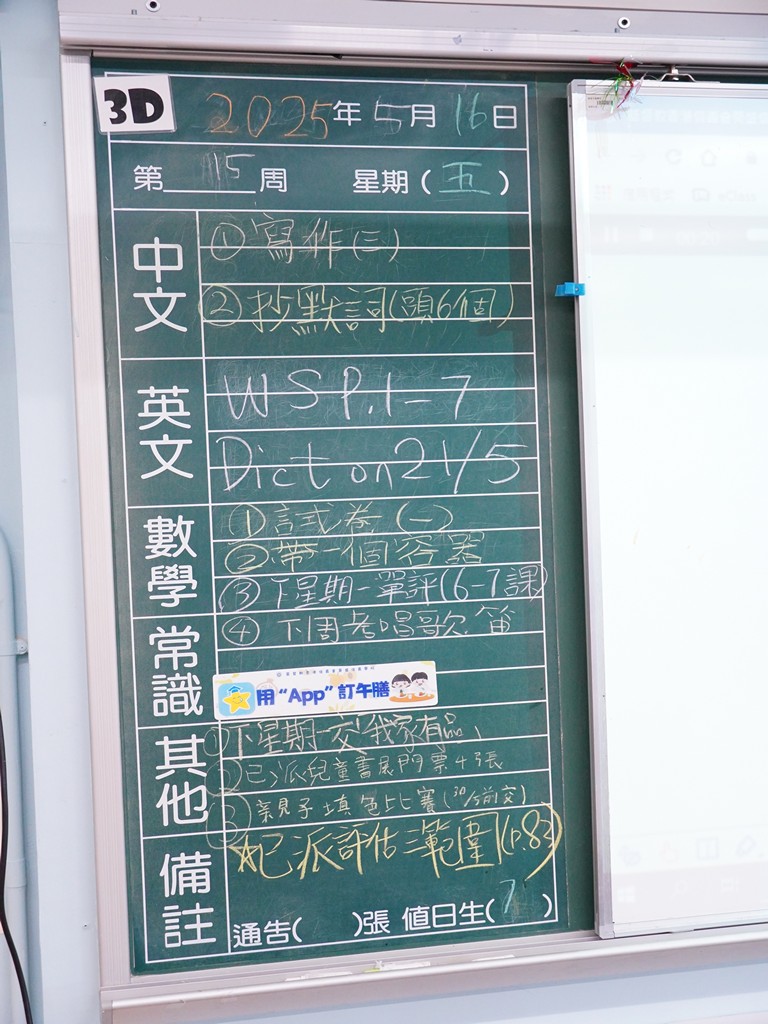 3D
2025年5月16日
第15周 星期(五)
中文
①寫作(三)
②抄默詞(頭6個)
英文
WS P.1-7
Dict on 21/5
數學
①試卷(一)
②帶一個容器
③下星期一單評(6-7課)
④下周考唱歌.笛
常識
用“App”訂午膳
其他
①下星期一交我家有品
②已派兒童書展門票4張
③親子填色比賽(30/5前交)
備註
☆已派評估範圍(P.83)
通告( )張 值日生(7)